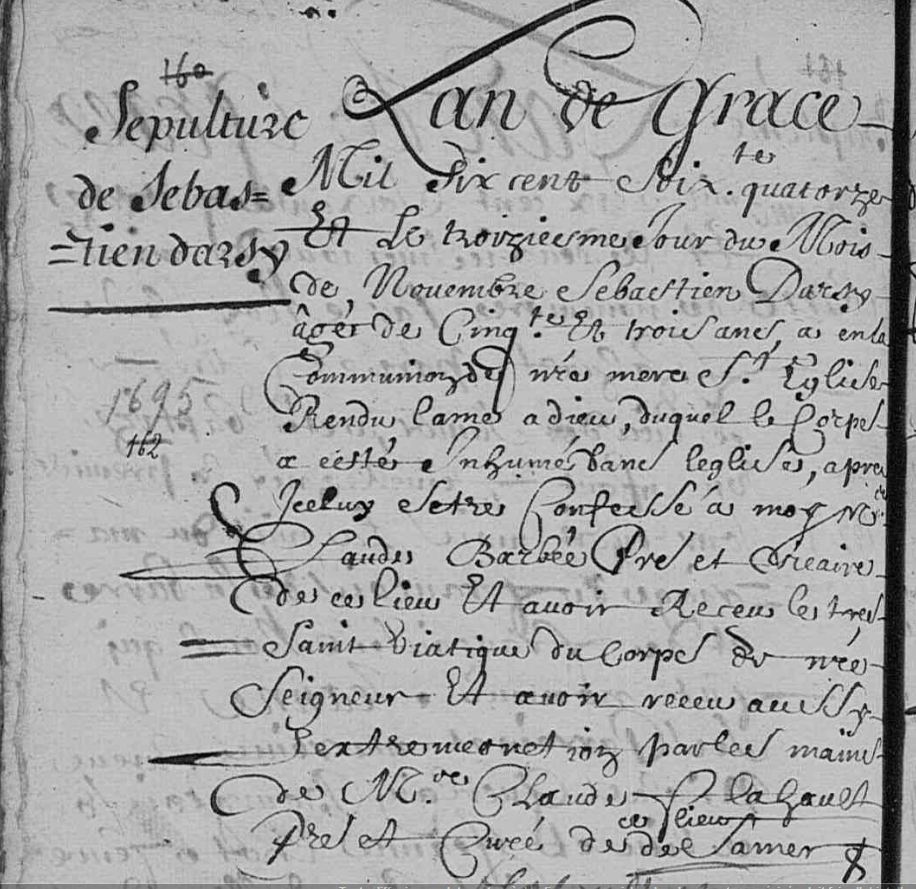 160
Sepulture
de Sebas=
=tien darsy
1695
162
Lan de Grace
Mil Six cent Soix.te quatorze
Et Le troiziesme Jour du Mois
de Novembre Sebastien Darsy
âgés de Cinq.te Et trois ans, a en la
Communion de nre mere S.t Eglise
Rendu lame a dieu, duquel le Corps
a estté Inhumé dans leglise, apres
Iceluy Estre Confessé a moy Me
Claude Barbée Pre et Vicaire
de ce lieu Et avoir Receu le tres
= Saint Viatique du Corps de nre
Seigneur Et avoir receu aussy
Lextremeonction par les mains
de M.re Claude Flahault
Pre et Curé de ce lieu de Samer